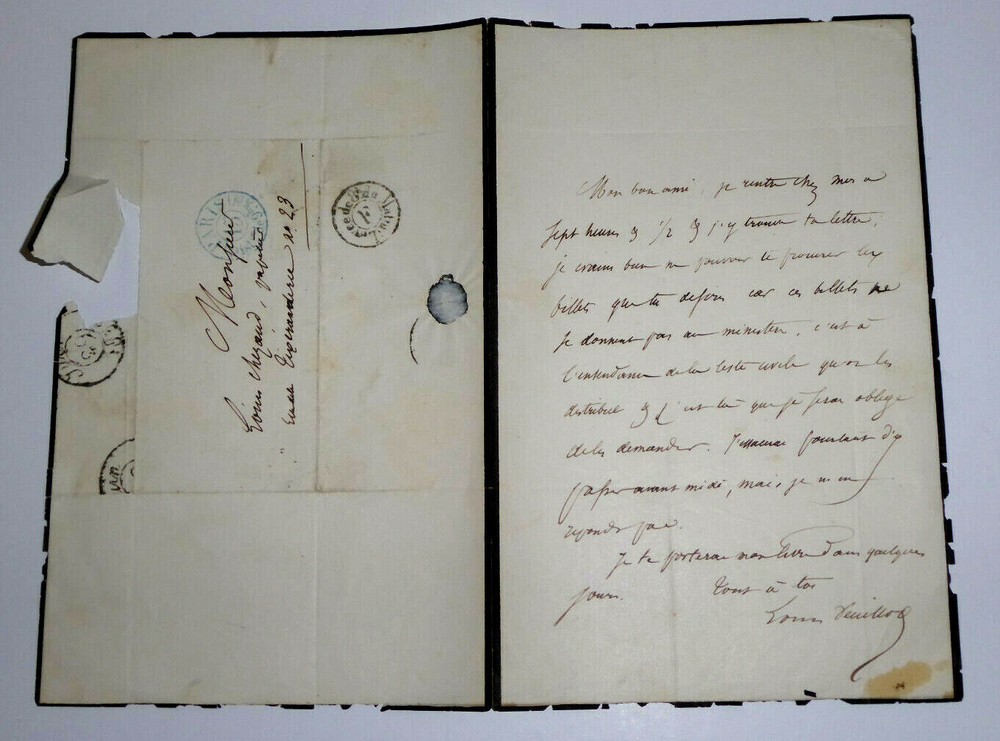 Monsieur
Louis
rue Tixéranderie no. 23
PARIS
Mon bon ami, je rentre chez moi à
sept heures & 1/2 & j'y trouve ta lettre,
je crains bien ne pouvoir te procurer les
billets que tu désires car ces billets ne
se donnent pas au ministère, c'est à
l'intendance de la liste civile qu'on les
distribue & c'est là que je serai obligé
de les demander. J'essaierai pourtant d'y
passer avant midi, mais je n'en
réponds pas.
Je te porterai mon livre dans quelques
jours.
Tout à toi
Louis Veuillot